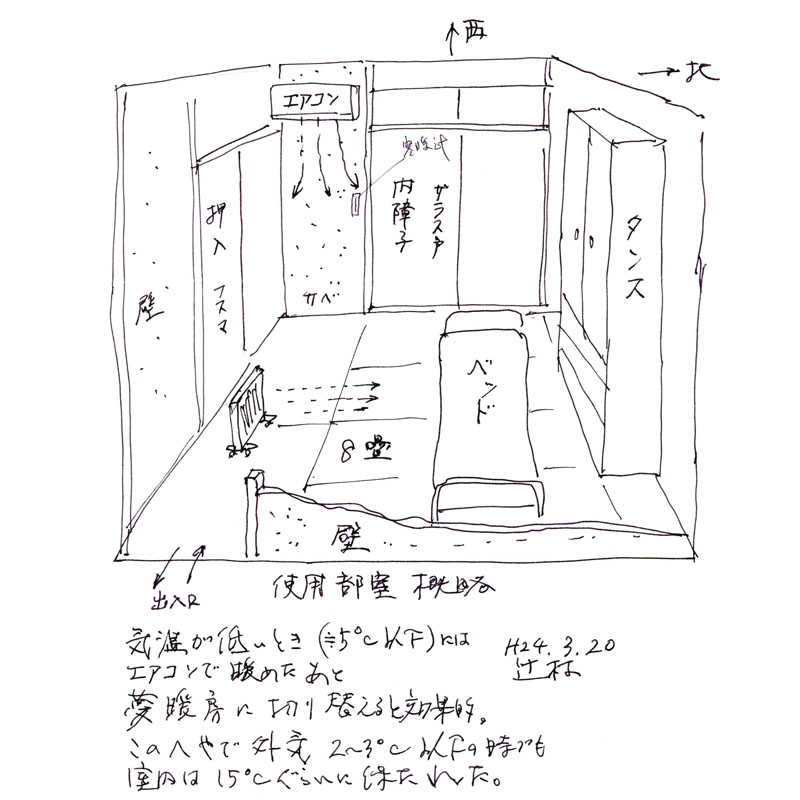 西
北
エアコン
ガラス戸
内障子
押入 フスマ
壁
カベ
タンス
ベッド
8畳
壁
出入口
使用部室 概略
気温が低いとき(≒5℃以下)には
エアコンで暖めたあと
夢暖房に切り替えると効果的。
このへやで外気 2〜3℃以下の時でも
室内は15℃ぐらいに保たれた。
H24.3.20
辻村